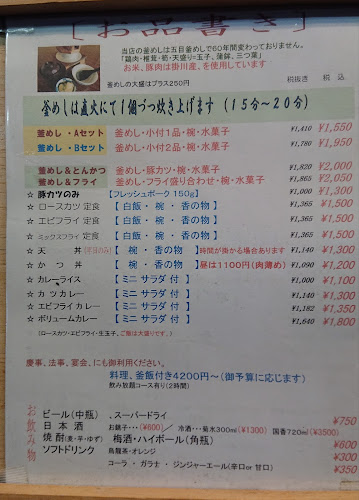 [お品書き]
当店の釜めしは五目釜めしで60年間変わっておりません。
「鶏肉・椎茸・筋・天盛り=玉子、蒲鉾、三つ葉」
お米、豚肉は掛川産、を使用しています
釜めしの大盛はプラス250円
税抜き 税込
釜めしは直火にて1個づつ炊き上げます (15分~20分)
釜めし・Aセット 釜めし・小付1品・椀・水菓子 ¥1,410 ¥1,550
釜めし・Bセット 釜めし・小付2品・椀・水菓子 ¥1,780 ¥1,950
釜めし&とんかつ 釜めし・豚カツ・椀・水菓子 ¥1,820 ¥2,000
釜めし&フライ 釜めし・フライ盛り合わせ・椀・水菓子 ¥1,865 ¥2,050
☆ 豚カツのみ 【フレッシュポーク150g】 ¥1,000 ¥1,100
☆ ロースカツ 定食 【白飯・椀・香の物】 ¥1,365 ¥1,500
☆ エビフライ 定食 【白飯・椀・香の物】 ¥1,365 ¥1,500
☆ ミックスフライ 定食 【白飯・椀・香の物】 ¥1,365 ¥1,500
☆ 天 丼(平日のみ) 【椀・香の物】 時間が掛かる場合あります ¥1,180 ¥1,300
☆ か つ 丼 【椀・香の物】 昼は1100円(肉薄め) ¥1,090 ¥1,200
☆ カレーライス 【ミニ サラダ 付】 ¥1,000 ¥1,100
☆ カ ツ カレー 【ミニ サラダ 付】 ¥1,140 ¥1,300
☆ エビフライ カレー 【ミニ サラダ 付】 ¥1,182 ¥1,350
☆ ボリュームカレー 【ミニ サラダ 付】 ¥1,640 ¥1,800
(ロースカツ・エビフライ・生玉子、ご飯は大盛りです。)
慶事、法事、宴会、にも御利用ください。
料理、釜飯付き4200円~(御予算に応じます)
飲み放題コース有り(2時間)
お飲み物
ビール(中瓶) 、スーパードライ ¥750
日 本 酒 お銚子・・・(¥600)/ 冷酒・・・菊水300ml(¥1300) 国香720ml(¥3500)
焼 酎(麦・芋・ゆず) 梅酒・ハイボール(角瓶) ¥600
ソフトドリンク 烏龍茶・オレンジ ¥300
コーラ・ガラナ・ジンジャーエール(辛口or甘口) ¥350